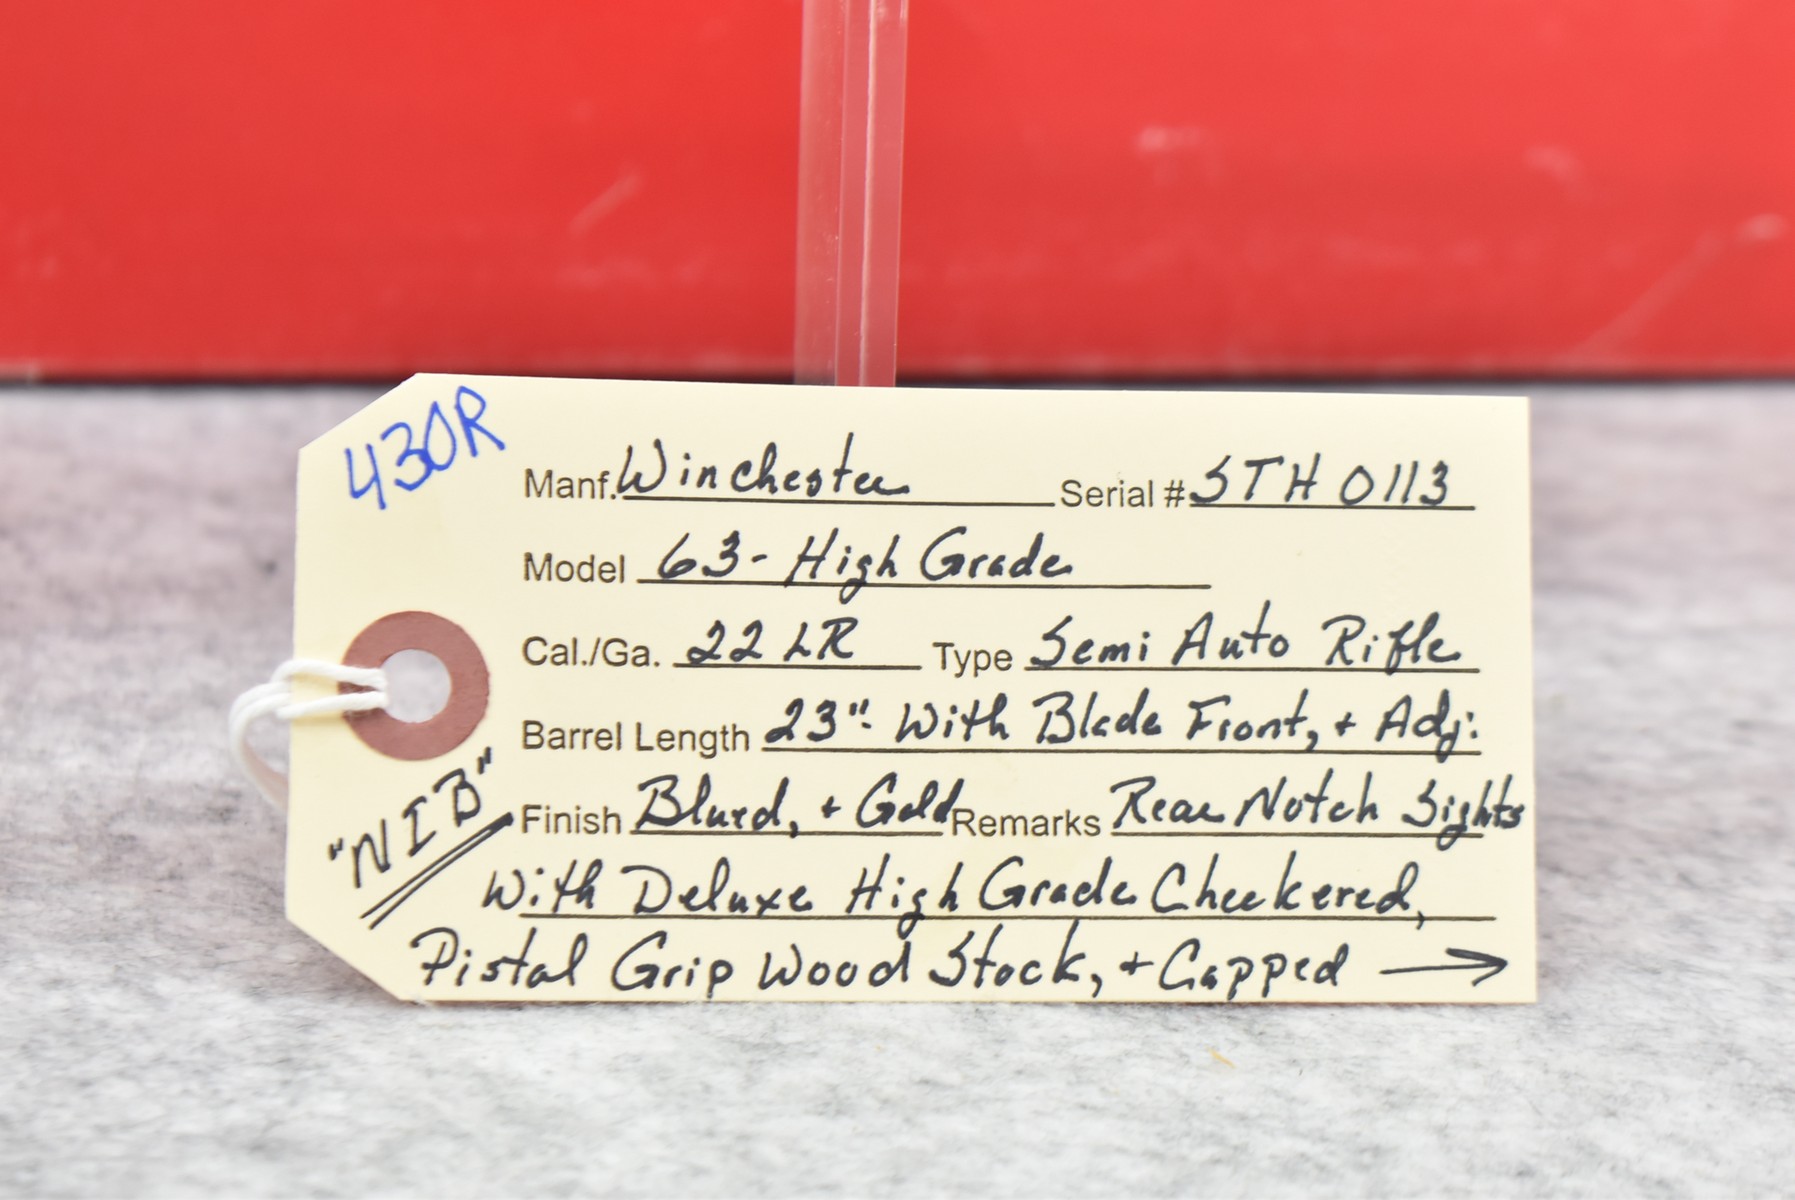 430R
Manf. Winchester Serial # STH 0113
Model 63- High Grade
Cal./Ga. 22 LR Type Semi Auto Rifle
Barrel Length 23" With Blade Front, + Adj:
"NIB"
Finish Blued, + Gold Remarks Rear Notch Sights
With Deluxe High Grade Checkered,
Pistal Grip Wood Stock, + Capped →